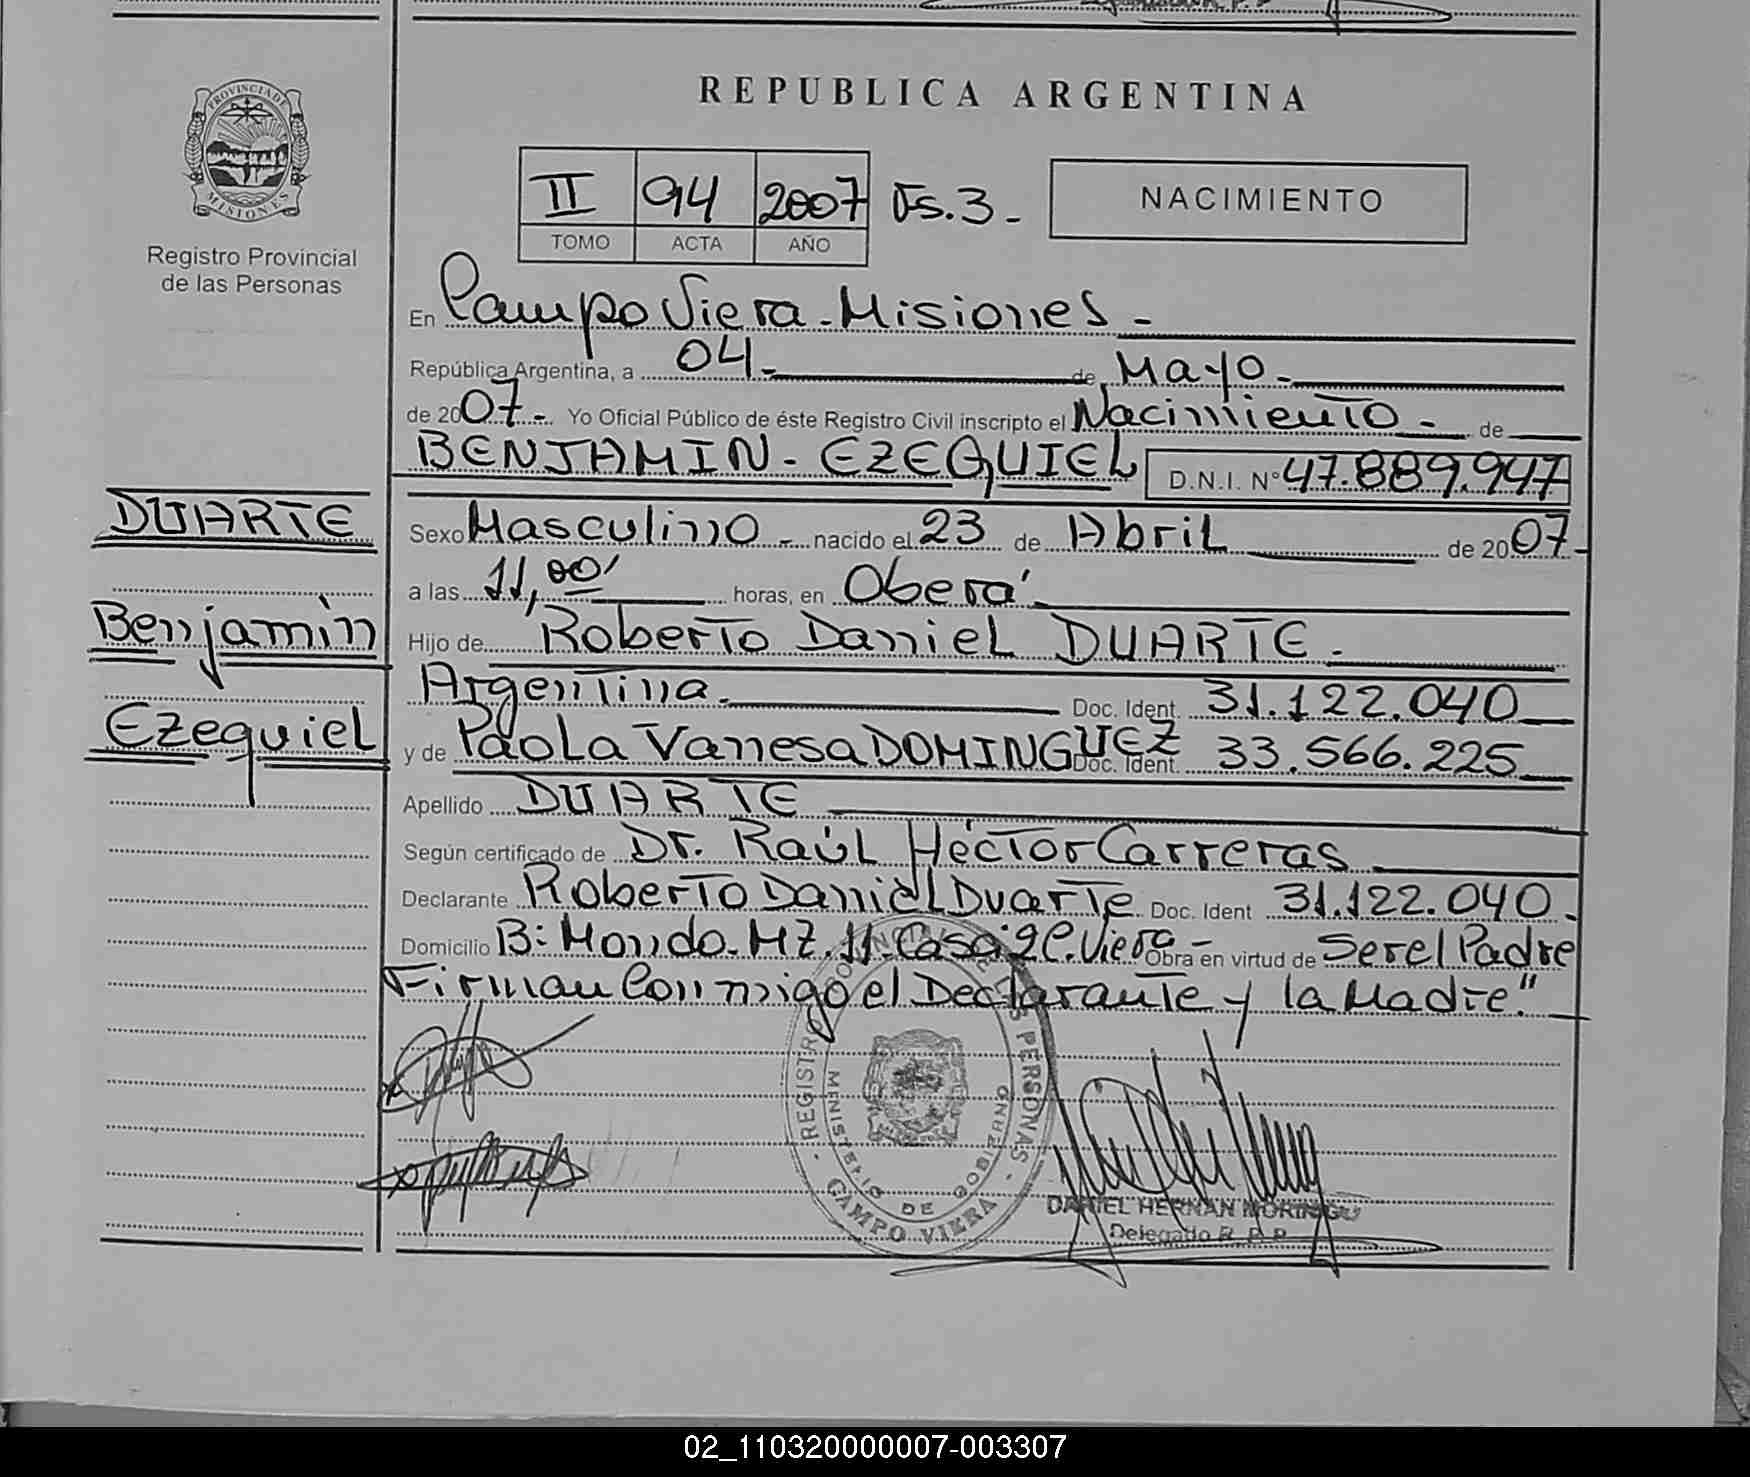 REPUBLICA ARGENTINA
PROVINCIA DE MISIONES
Registro Provincial
de las Personas
II 94 2007 Fs.3-
TOMO ACTA AÑO
NACIMIENTO
En Campo Viera - Misiones -
República Argentina, a 04 - de Mayo -
de 2007 - Yo Oficial Público de éste Registro Civil inscripto el Nacimiento - de
BENJAMIN - EZEQUIEL D.N.I. Nº 47.889.947
DUARTE
Benjamin
Ezequiel
Sexo Masculino - nacido el 23 de Abril de 2007-
a las 11,00' horas, en Oberá -
Hijo de Roberto Daniel DUARTE -
Argentina - Doc. Ident. 31.122.040
y de Paola Vanesa DOMINGUEZ Doc. Ident. 33.566.225
Apellido DUARTE
Según certificado de Dr. Raúl Héctor Carreras
Declarante Roberto Daniel Duarte Doc. Ident 31.122.040.
Domicilio B: Mondo - MZ. 11 - Casa: 2 C. Viera - Obra en virtud de Ser el Padre
Firman Conmigo el Declarante y la Madre."
REGISTRO PROVINCIAL DE LAS PERSONAS
MINISTERIO DE GOBIERNO
CAMPO VIERA
DANIEL HERNAN
Delegado R. P. P.
02_110320000007-003307